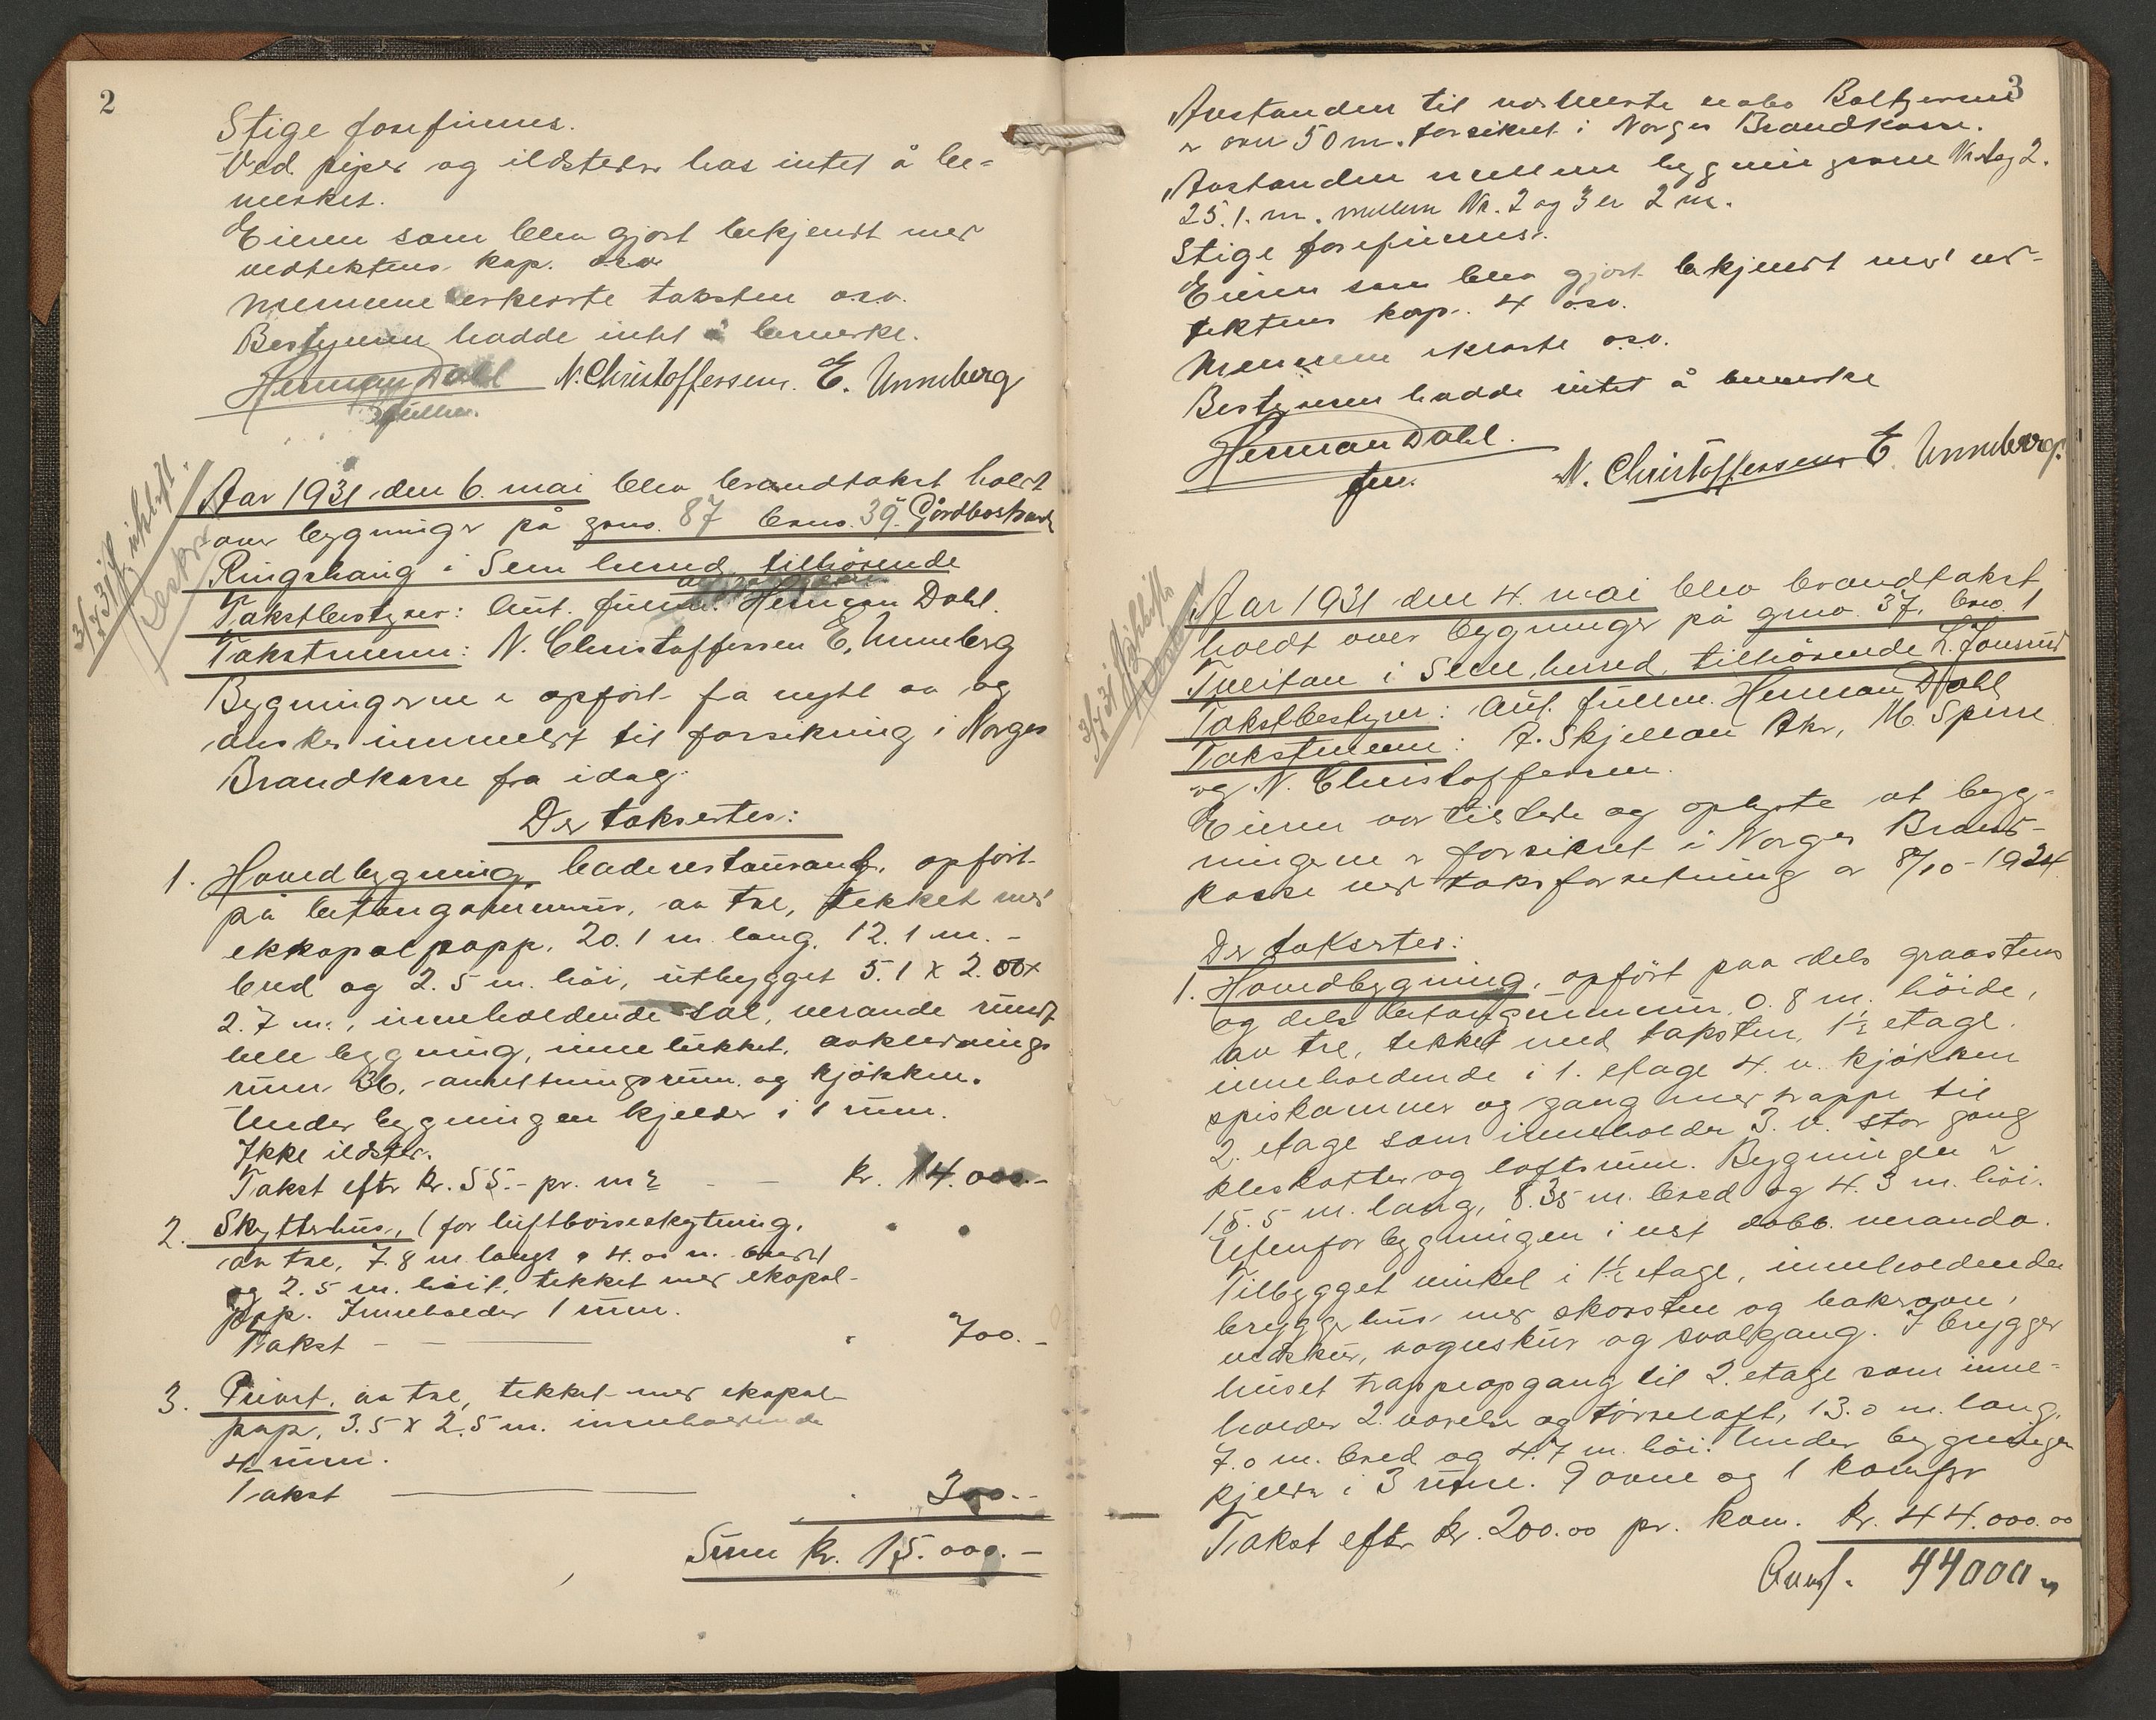 2
Stige forefinnes.
Ved piper og ildsteder has intet å be-
merkes.
Eieren som blev gjort bekjendt med
vedtektens kap. osv.
Mennene erkente taksten osv.
Bestyreren hadde intet å bemerke.
Herman Dahl N. Christoffersen. E. Unneberg
Aar 1931 den 6. mai blev brandtakst holdt
over bygninger på gno. 87 bno. 39. Gårdbostrand
Ringshaug i Sem herred, tilhörende
Takstbestyrer: Aut. fullm. Herman Dahl.
Takstmenn: N. Christoffersen E. Unneberg
Bygningerne er opfört fra nytt av og
önskes innmeldt til forsikring i Norges
Brandkasse fra idag.
Der taksertes:
1. Hovedbygning, baderestaurant, opfört
på betongmur, av tre, tekket med
ekkopalpapp, 20.1 m lang, 12.1 m. -
bred og 2.5 m. höi, utbygget 5.1 x 2.00x
2.7 m., inneholdende sal, veranda rundt
hele bygning, innelukket, avklednings
rum, anretningsrum og kjökken.
Under bygningen kjelder i 1 rum.
Ikke ildsted.
Takst efter kr. 55.- pr. m2 - - kr. 14.000.-
2. Skytterhus, (for luftbörseskytning.
av tre, 7.8 m langt o 4.00 m. bredt
og 2.5 m. höit, tekket med ekopal-
papp. Inneholder 1 rum.
Takst - 700.-
3. Privet, av tre, tekket med ekopal-
pap, 3.5 x 2.5 m. inneholdende
4 rum.
Takst 300.-
Sum kr. 15.000.-
3/7 31
3
Avstanden til nærmeste nabo
er over 50 m. forsikret i Norges Brandkasse.
Avstanden mellem bygningerne Nr 1 og 2.
25.1. m. mellem Nr. 2 og 3 er 2 m.
Stige forefinnes.
Eieren som blev gjort bekjendt med ved-
tektens kap. 4 osv.
Mennene erkente osv.
Bestyreren hadde intet å bemerke
Herman Dahl.
fm.
N. Christoffersen E. Unneberg.
3/7 31
Aar 1931 den 4. mai blev brandtakst
holdt over bygninger på gno. 37, bno. 1
Tveitan i Sem herred, tilhörende
Takstbestyrer: Aut. fullm. Herman Dahl
Takstmenn: A. Skjellau Akr, M. Sperre
og N. Christoffersen.
Eieren var tilstede og oplyste at byg-
ningene er forsikret i Norges Brand-
kasse ved takstforretning av 8/10 - 1924.
Der taksertes:
1. Hovedbygning, opfört paa dels graastens
og dels betongmur, 0.8 m. höide,
av tre, tekket med taksten, 1½ etage.
inneholdende i 1. etage 4. v. kjökken
spiskammer og gang med trappe til
2. etage som inneholder 3. v. stor gang
kleskotter og loftsrum. Bygningen er
15.5 m. lang, 8.35 m. bred og 4.3 m. höi.
Utenfor bygningen i vest dobb. veranda.
Tilbygget vinkel i 1½ etage, inneholdende
bryggerhus med skorsten og bakerovn,
vedskur, vognskur og svalgang. I brygger
huset trappeopgang til 2. etage som inne-
holder 2. værelser og törreloft, 13.0 m. lang,
7.0 m. bred og 4.7 m. höi. Under bygningen
kjelder i 3 rum. 9 ovne og 1 komfyr
Takst efter kr. 200.00 pr. kvm. kr. 44.000.00
44000